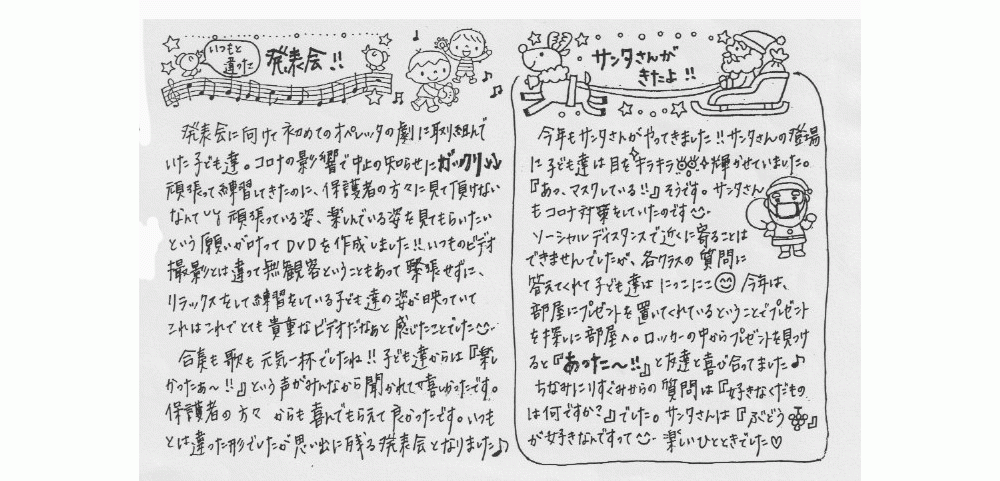 いつもと
違った
発表会!!
発表会に向けて初めてのオペレッタの劇に取り組んで
いた子ども達。コロナの影響で中止の知らせにガックリ
頑張って練習してきたのに、保護者の方々に見て頂けない
なんて 頑張っている姿、楽しんでいる姿を見てもらいたい
という願いが叶ってDVDを作成しました!!いつものビデオ
撮影とは違って無観客ということもあって緊張せずに、
リラックスをして練習をしている子ども達の姿が映っていて
これはこれでとても貴重なビデオだなあと感じたことでした
合奏も歌も元気一杯でしたね!!子ども達からは『楽し
かったぁ〜!!』という声がみんなから聞かれて嬉しかったです。
保護者の方々からも喜んでもらえて良かったです。いつも
とは違った形でしたが思い出に残る発表会となりました♪
サンタさんが
きたよ!!
今年もサンタさんがやってきました!!サンタさんの登場
に子ども達は目をキラキラ輝かせていました。
『あっ、マスクしている!!』そうです。サンタさん
もコロナ対策をしていたのです
ソーシャルディスタンスで近くに寄ることは
できませんでしたが、各クラスの質問に
答えてくれて子ども達はにっこにこ 今年は、
部屋にプレゼントを置いてくれているということでプレゼント
を探しに部屋へ。ロッカーの中からプレゼントを見つけ
ると『あったー〜!!』と友達と喜び合ってました♪
ちなみにりすぐみからの質問は『好きなくだもの
は何ですか?』でした。サンタさんは『ぶどう』
が好きなんですって 楽しいひとときでした♡